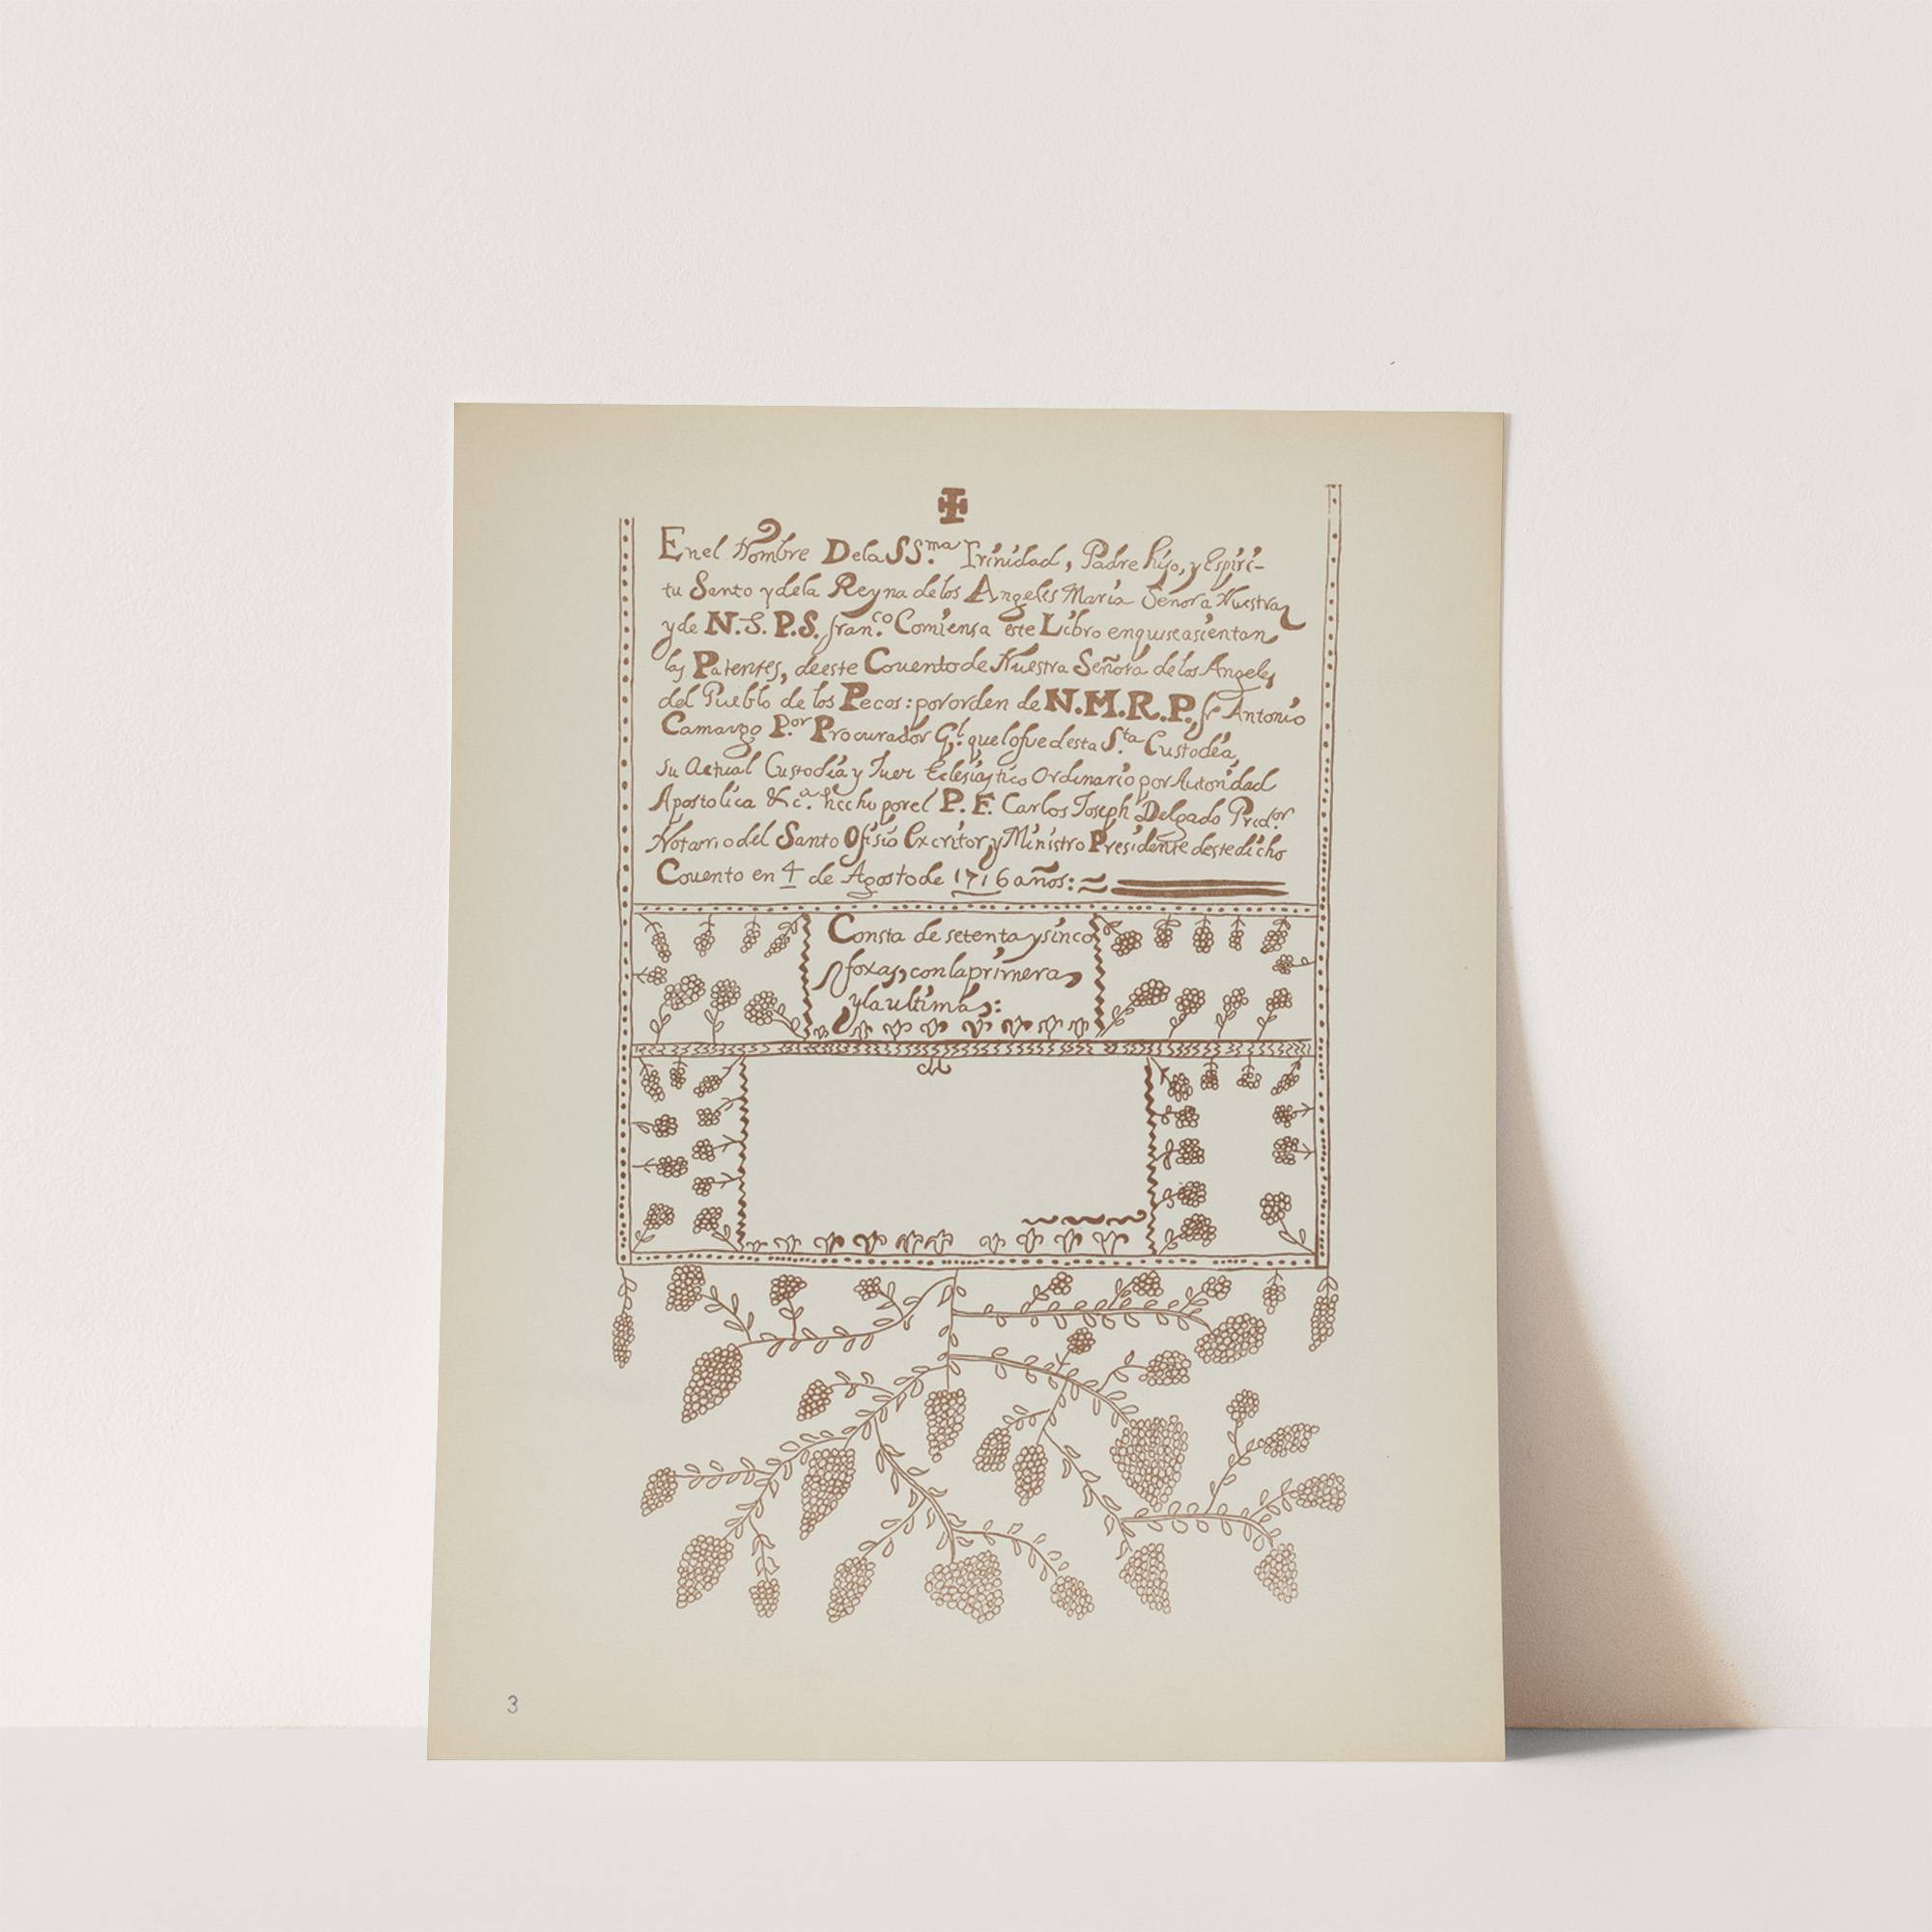 En el Nombre De la SS.ma Trinidad, Padre hijo, y Espiri-
tu Santo y dela Reyna delos Angeles Maria Señora Nuestra
y de N.S.P.S. fran.co Comiensa este Libro enquiseasientan
las Patentes, deeste Couento de Nuestra Señora delos Angeles
del Pueblo de los Pecos: pororden de N.M.R.P. fr Antonio
Camargo P.or Procurador G.l quelofuedesta S.ta Custodia,
su Actual Custodia y Juez Eclesiastico Ordinario por Autoridad
Apostolica &c.a hecho porel P. F. Carlos Joseph Delgado Pred.or
Notario del Santo Ofisio Excritor, y Ministro Presidente destedicho
Couento en 4 de Agosto de 1716 años:
Consta de setenta y sinco
foxas, con la primera,
y la ultima:
3